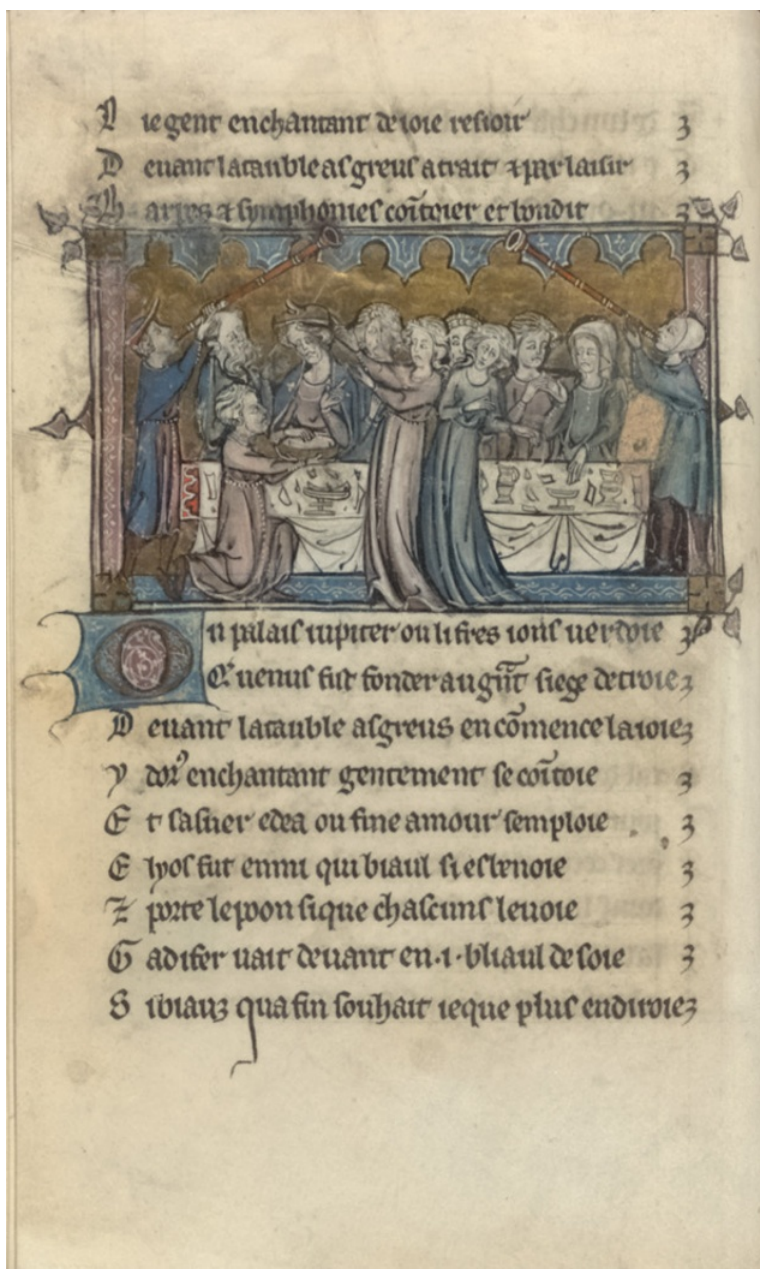 L ie gent en chantant de ioie resioir
D euant la tauble as greus a trait ⁊ par laisir
H arpes ⁊ symphonies coītoier et bondir
O u palais iupiter ou li fres ions uerdoie
Et uenus fut fonder au gñt siege de troie
D euant la tauble as greus en cōmence la ioie
y dor' en chantant gentement se coītoie
E t sa suer edea ou fine amour semploie
E lyos fut enmi qui biaul si esbenoie
⁊ porte le poon si que chascuns le uoie
G adifer uait deuant en .i. bliaul de soie
S i biauz qua fin souhait ie que plus en diroie